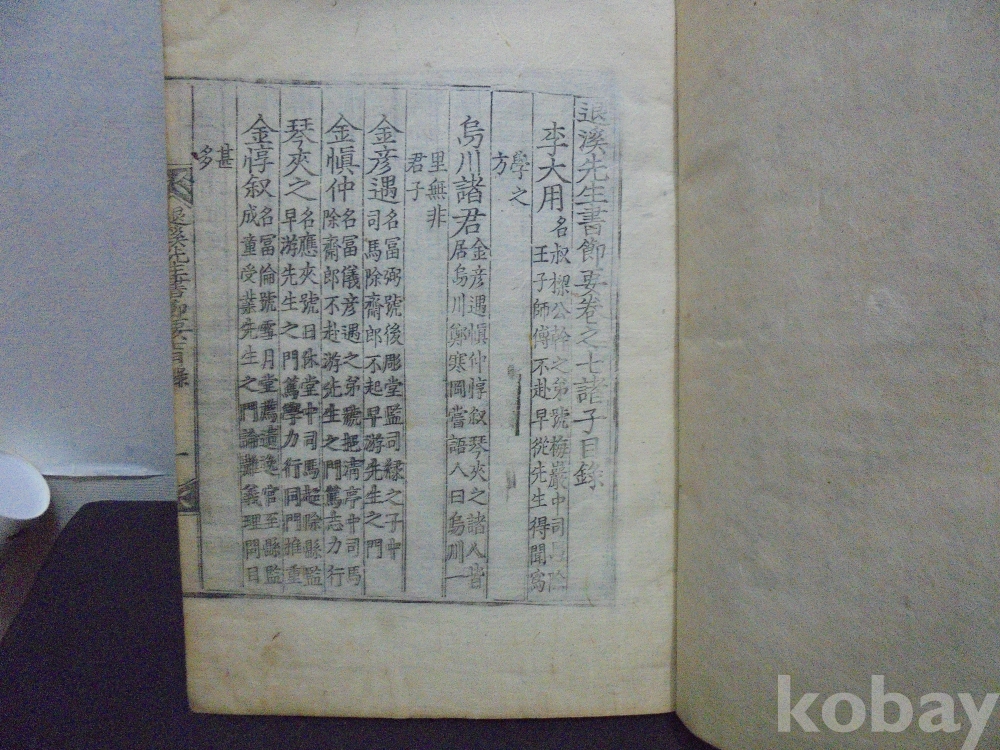 退溪先生書節要卷之七諸子目錄
李大用 名叔樑公幹之弟號梅巖中司馬除
王子師傅不赴早從先生得聞爲
學之
方
烏川諸君 金彦遇愼仲惇叙琴夾之諸人皆
居烏川鄭寒岡嘗語人曰烏川一
里無非
君子
金彦遇 名富弼號後彫堂監司緣之子中
司馬除齋郎不起早游先生之門
金愼仲 名富儀彦遇之弟號挹淸亭中司馬
除齋郎不赴游先生之門篤志力行
琴夾之 名應夾號日休堂中司馬超除縣監
早游先生之門篤學力行同門推重
金惇叙 名富倫號雪月堂薦遺逸官至縣監
成童受業先生之門論難義理問目
甚
多
退溪先生書節要 目錄 一
kobay